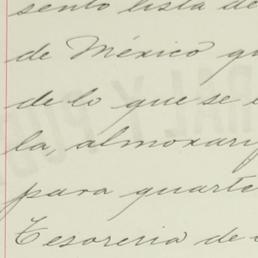 sento lista de
de México qu
de lo que se
la, almoxarif
para quarte
Tesoreria de